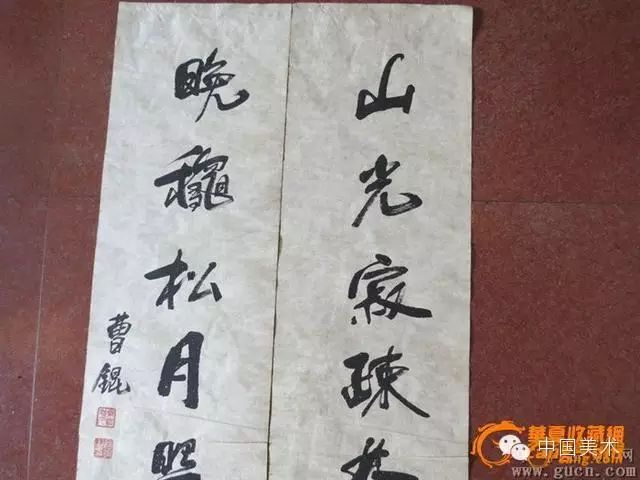 山光寂踈
晚穐松月
曹錕
華夏收藏網
中国美术
www.gucn.com